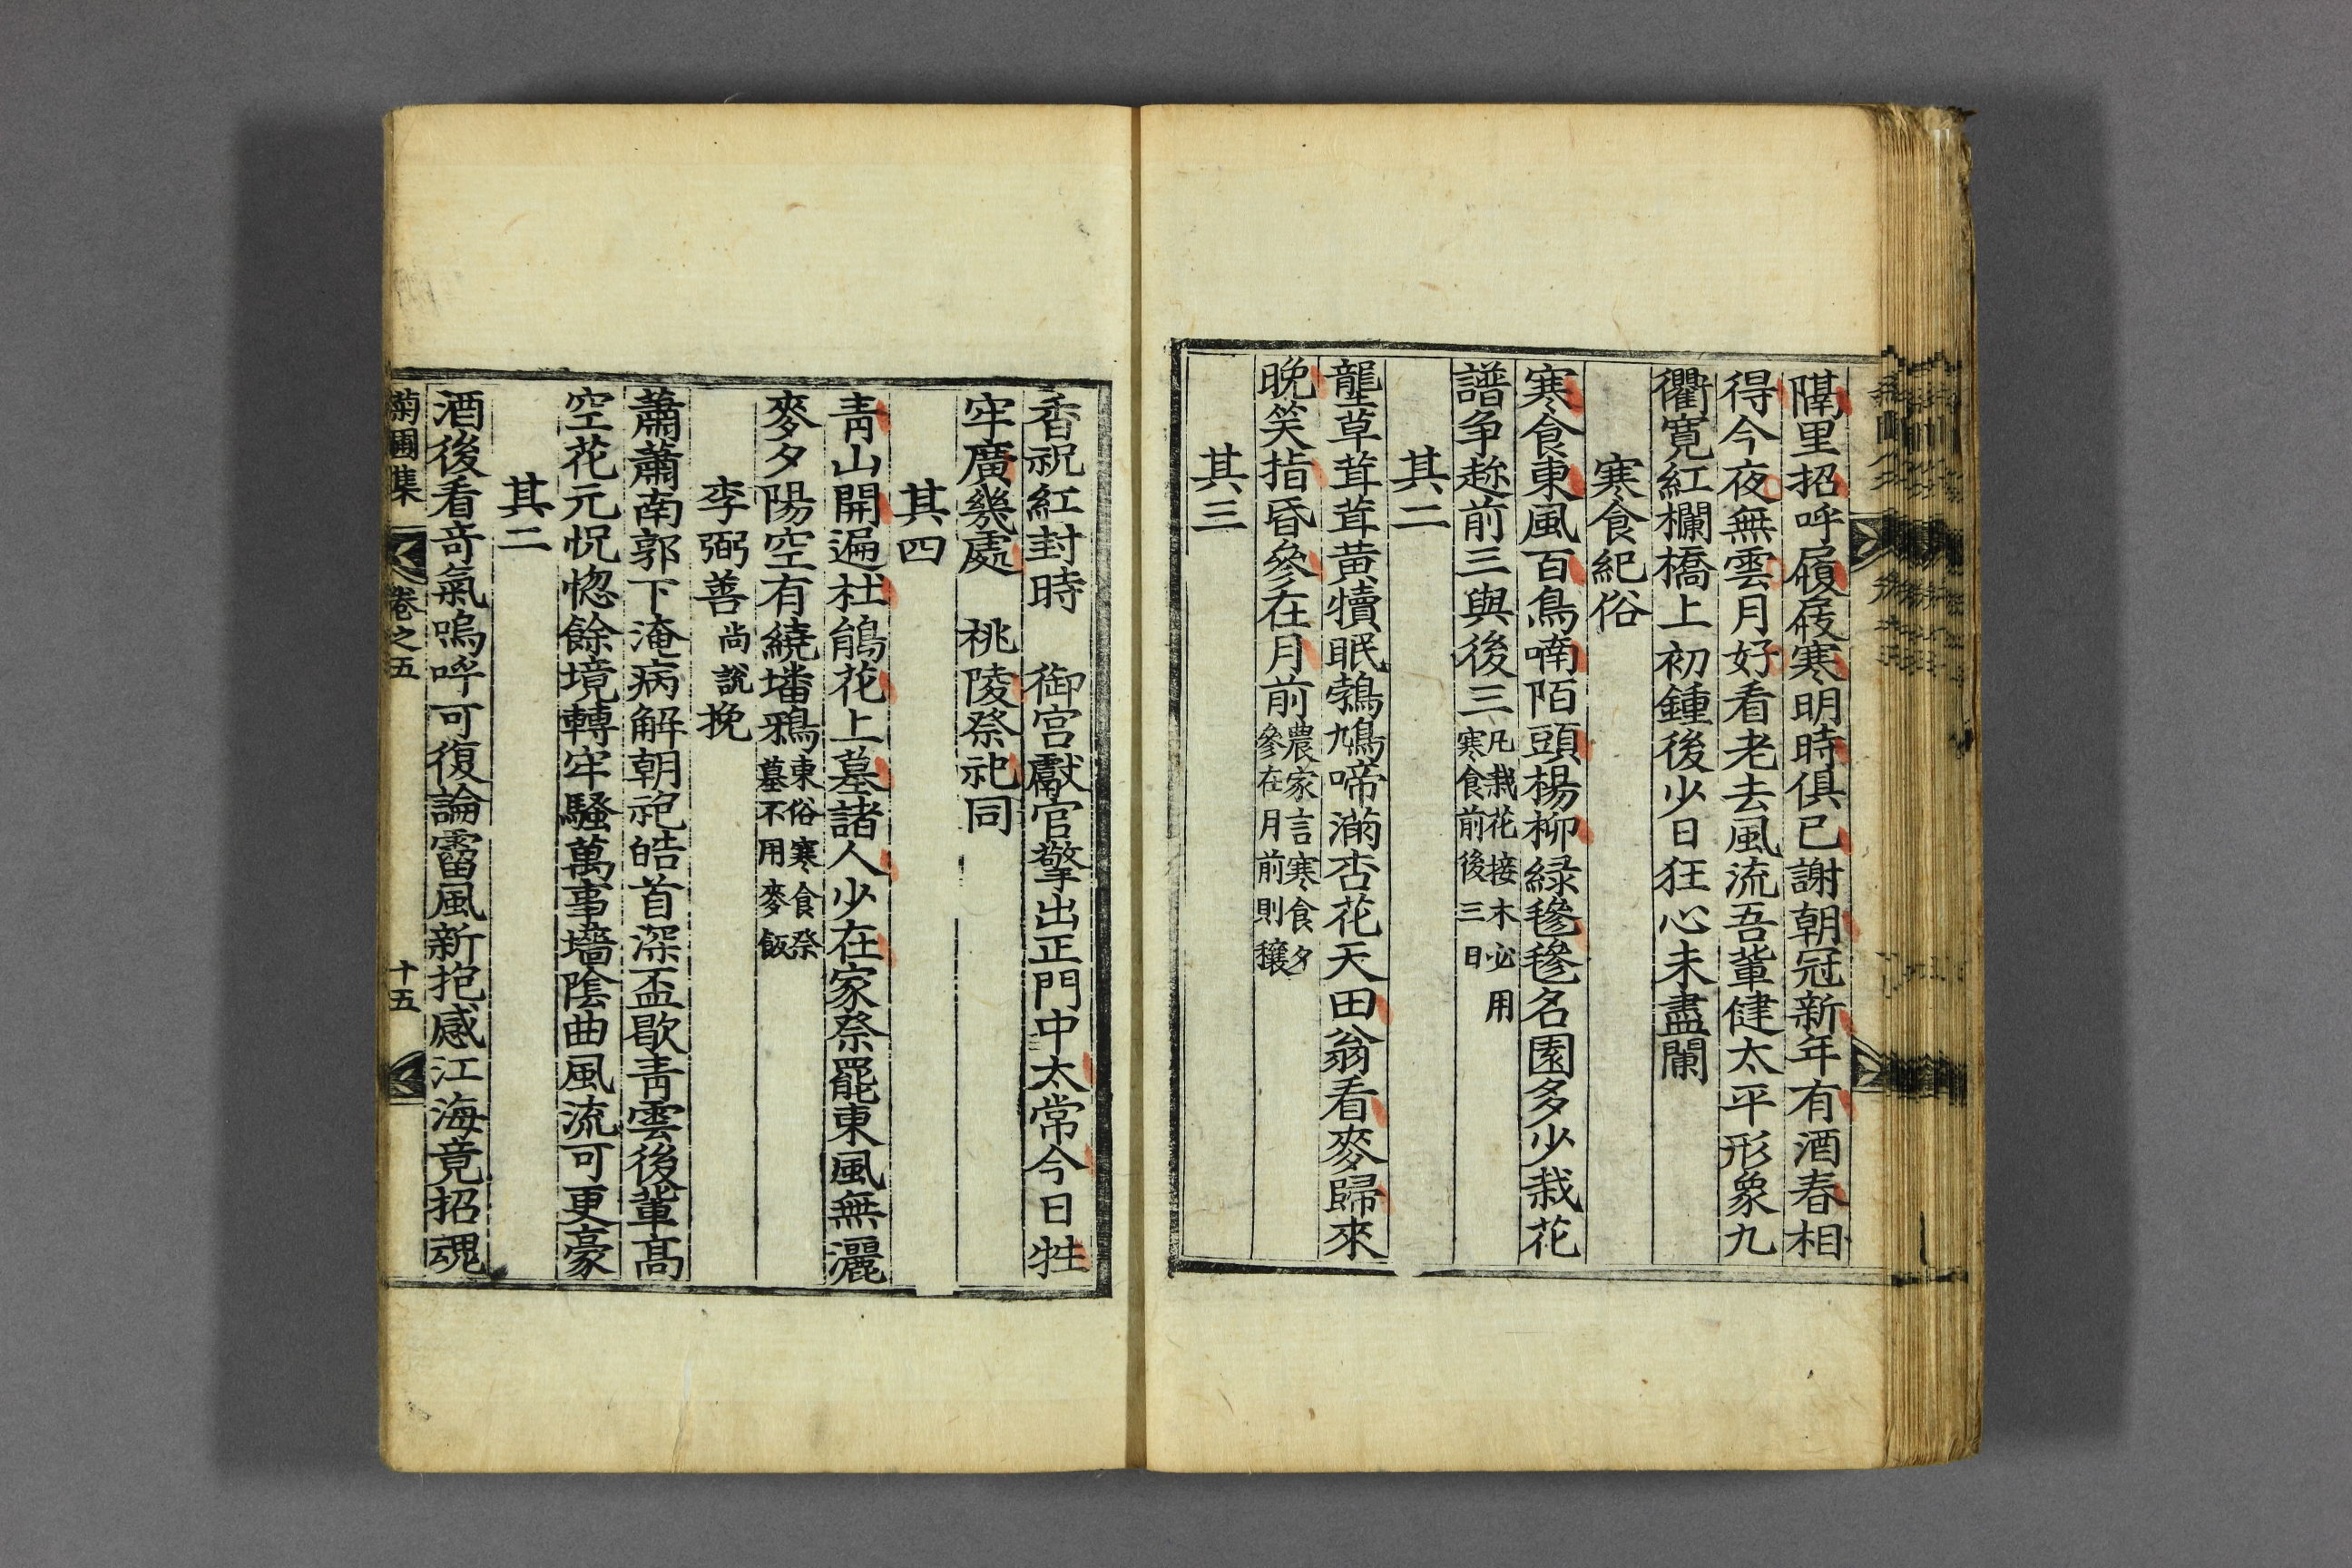 隣里招呼履屐寒明時俱已謝朝冠新年有酒春相
得今夜無雲月好看老去風流吾輩健太平形象九
衢寛紅欄橋上初鍾後少日狂心未盡闌
寒食紀俗
寒食東風百鳥喃陌頭楊柳綠毿毿名園多少栽花
譜爭趂前三與後三凡栽花接木必用寒食前後三日
其二
壟草茸茸黃犢眠鵓鳩啼滿杏花天田翁看麥歸來
晩笑指昏參在月前農家言寒食夕參在月前則穰
其三
香祝紅封時 御宮獻官擎出正門中太常今日牲
牢廣幾處 桃陵祭祀同
其四
靑山開遍杜鵑花上墓諸人少在家祭罷東風無灑
麥夕陽空有繞墦鴉東俗寒食祭墓不用麥飯
李弼善尙說挽
蕭蕭南郭下淹病解朝袍皓首深盃歇靑雲後輩高
空花元怳惚餘境轉牢騷萬事墻陰曲風流可更豪
其二
酒後看奇氣嗚呼可復論霤風新抱感江海竟招魂
菊圃集 卷之五 十五